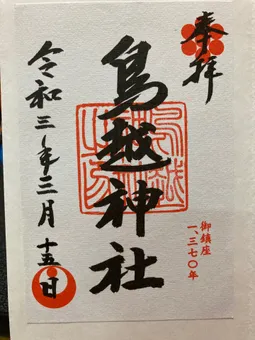 奉拝
鳥越神社
令和三年三月十五日
御鎮座
一、三七〇年